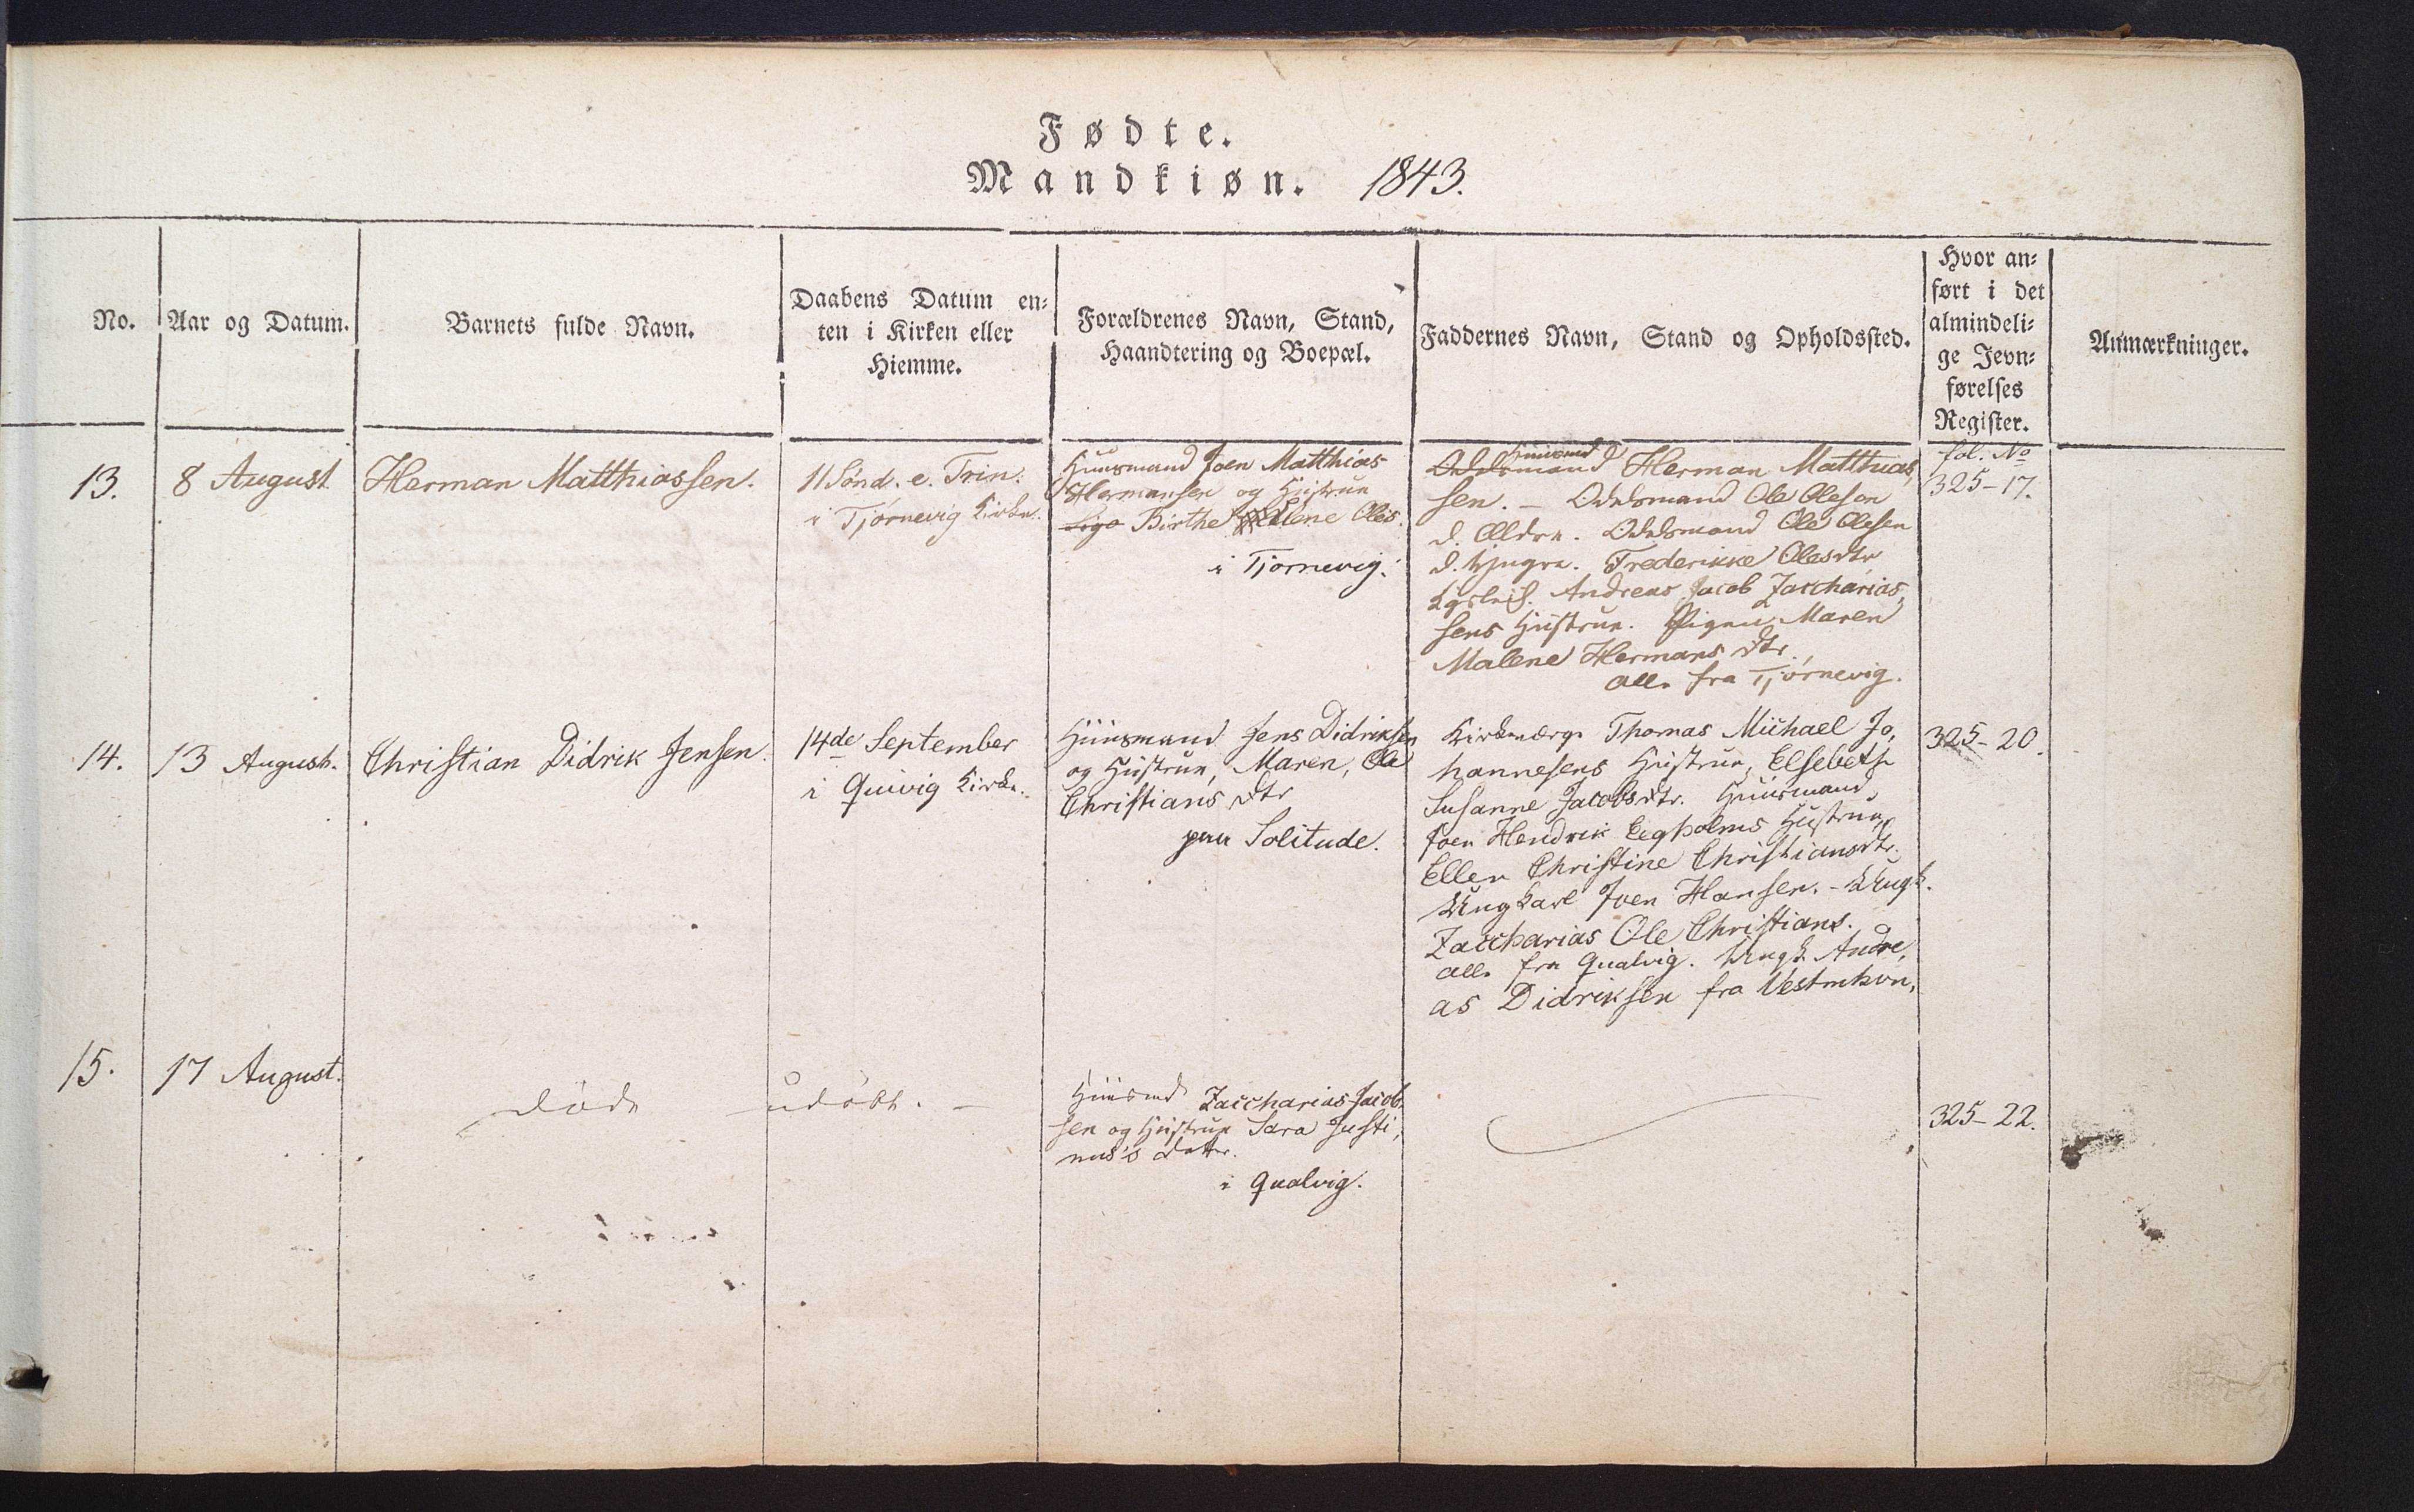 Fødte.
Mandkiøn. 1843.
No.
Aar og Datum.
Barnets fulde Navn.
Daabens Datum en-
ten i Kirken eller
Hiemme.
Forældrenes Navn, Stand,
Haandtering og Boepæl.
Faddernes Navn, Stand og Opholdssted.
Hvor an-
ført i det
almindeli-
ge Jevn-
førelses
Register.
Anmærkninger.
13.
8 August
Herman Matthiassen.
11 Sønd. e. Trin.
i Tjørnevig Kirke.
Huusmand Joen Matthias
Hermansen og Hustrue
Birthe Malene Oles.
i Tjørnevig.
Huusmd
Odelsmand Herman Matthias,
sen. – Odelsmand Ole Olesen
d. Ældre. Odelsmand Ole Olesen
d. Yngre. Frederikke Olesdtr
Andreas Jacob Zaccharias,
sens Hustrue. Pigen Maren
Malene Hermans dtr.
alle fra Tjørnevig.
fol. No
325-17.
14.
13 August.
Christian Didrik Jensen.
14de September
i Quivig Kirke.
Huusmand Jens Didriksen
og Hustrue, Maren, Ole
Christians dtr
paa Solitude.
Kirkeværge Thomas Michael Jo,
hannesens Hustrue, Elsebeth
Susanne Jacobsdtr. Huusmand
Joen Hendrik Eegholms Hustrue
Ellen Christine Christiansdtr.
Ungkarl Joen Hansen. – Ungk.
Zaccharias Ole Christians.
alle fra Qualvig. Ungk. Andre,
as Didriksen fra Vestmhvn,
325-20.
15.
17 August.
døde udøbt. –
Huusmd Zaccharias Jacob-
sen og Hustrue Sara Justi,
nus's datter.
i Qualvig.
325-22.